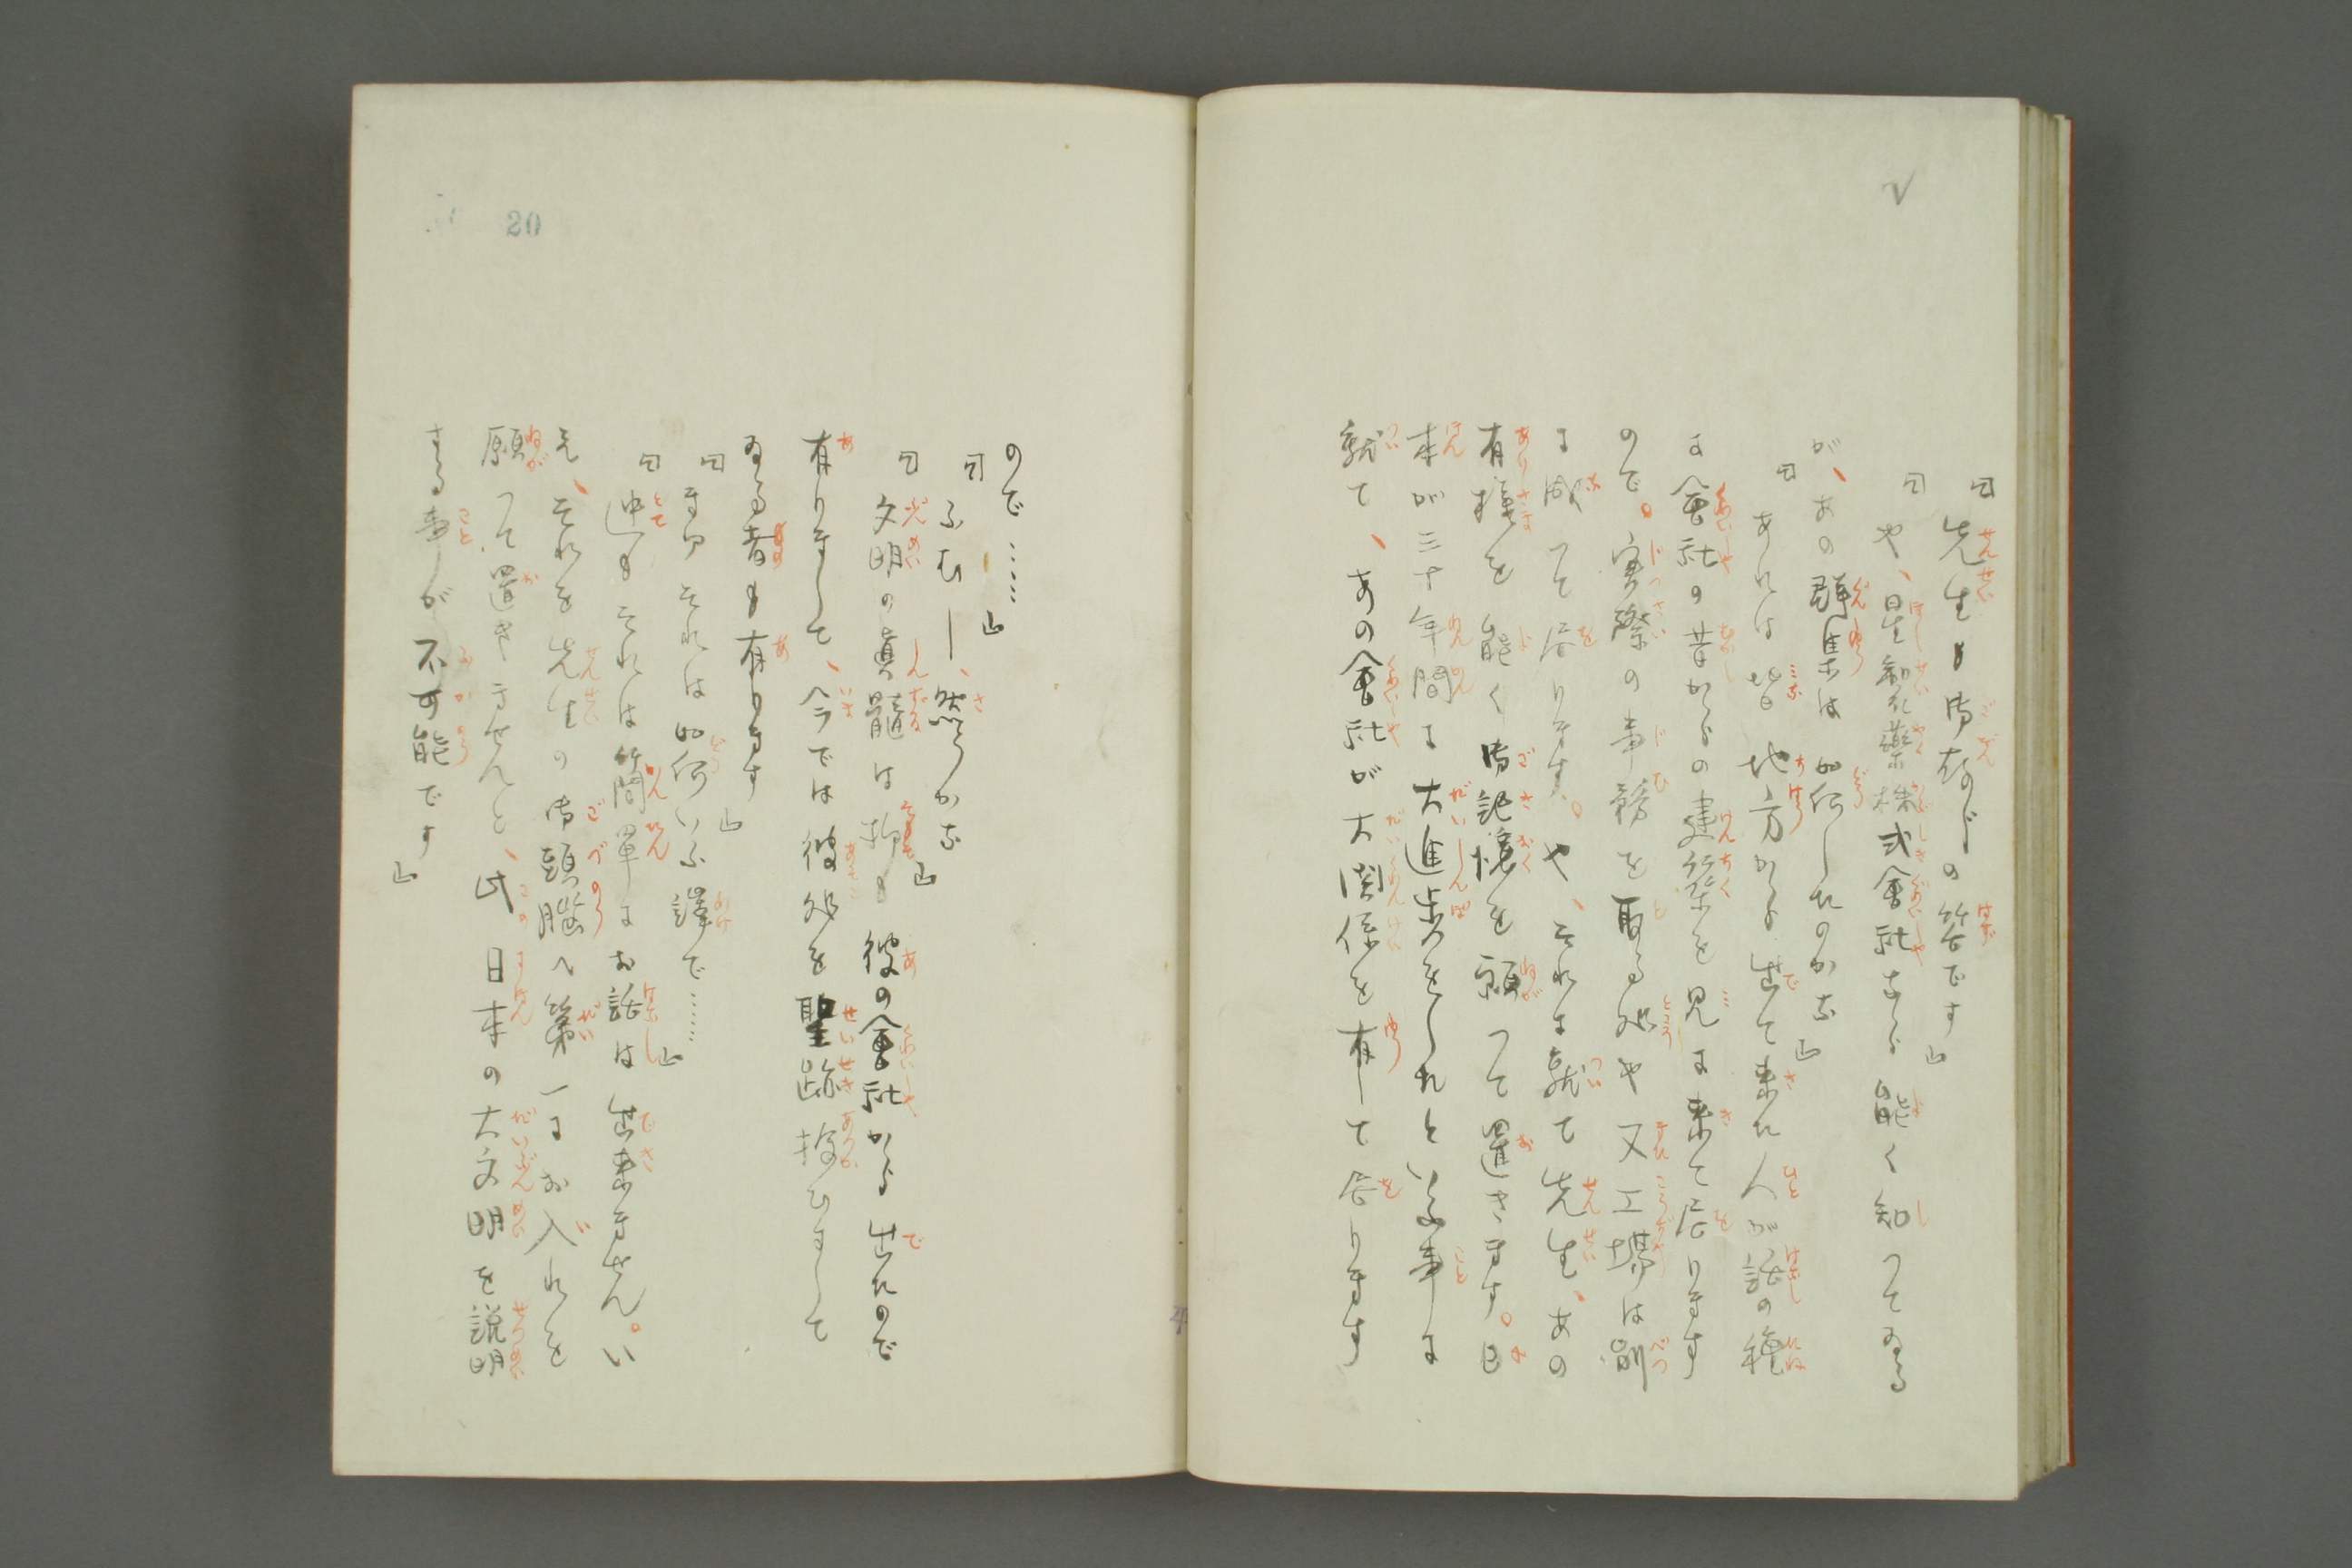 「先生も御存じの筈です」
「や、星製藥株式會社なら能く知つてゐる
が、あの群集は如何したのかな」
「あれは皆地方から出て来た人が話の種
に會社の昔からの建築を見に来て居ります
ので。実際の事務を取る処や又工場は別
に成つて居ります。や、それに就て先生、あの
有様を能く御記憶を願つて置きます。日
本が三十年間に大進歩をしたといふ事に
就て、あの會社が大関係を有して居ります
ので……」
「ふむー、然うかな」
「文明の真髓は抑も彼の會社から出たので
有りまして、今では彼処を聖跡扱ひまして
ゐる者も有ります」
「まア それは如何いふ譯で……」
「迚もそれは簡單にお話は出来ません。い
え、それを先生の御頭腦へ第一にお入れを
願つて置きませんと、此日本の大文明を説明
する事が不可能です」
20